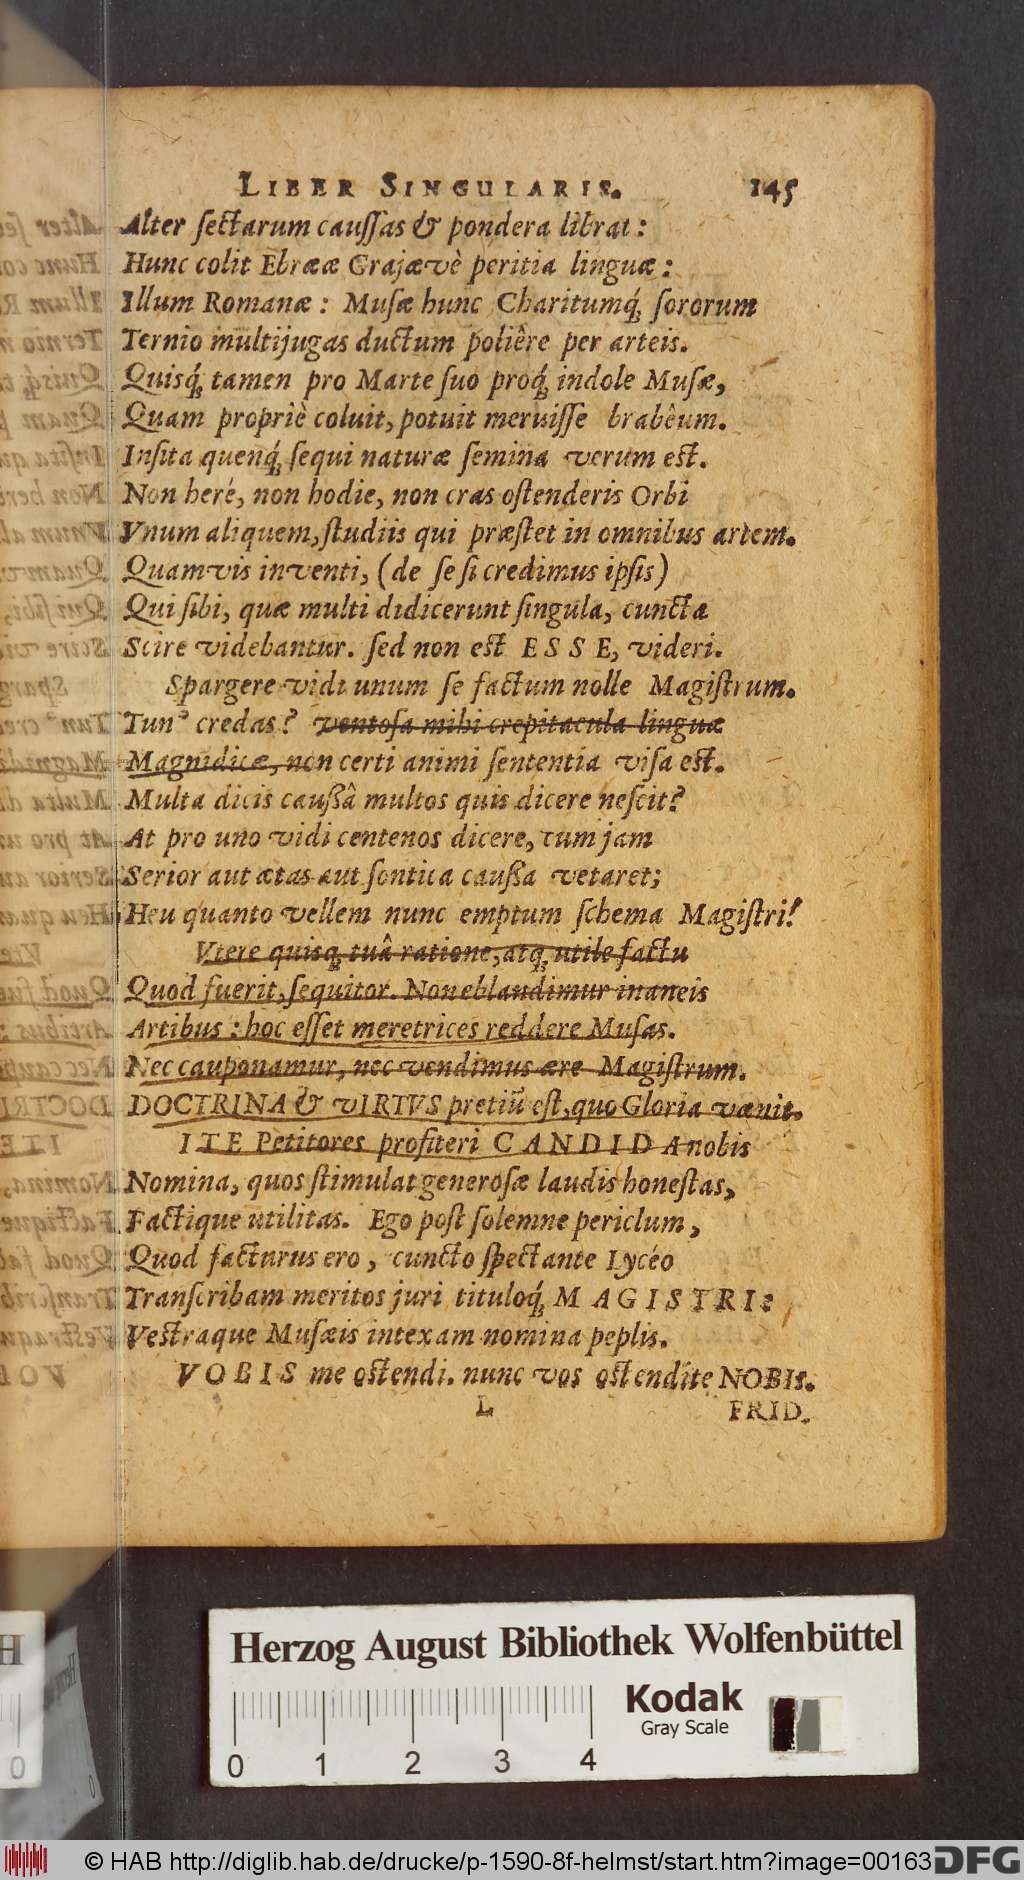 LIBER SINGULARIS. 145
Alter sectarum caussas & pondera librat:
Hunc colit Ebrææ Grajævè peritia linguæ:
Illum Romanæ: Musæ hunc Charitumq́; sororum
Ternio multijugas ductum poliêre per arteis.
Quisq́; tamen pro Marte suo proq́; indole Musæ,
Quam propriè coluit, potuit meruisse brabêum.
Insita quenq́; sequi naturæ semina verum est.
Non heré, non hodie, non cras ostenderis Orbi
Vnum aliquem, studiis qui præstet in omnibus artem.
Quamvis inventi, (de se si credimus ipsis)
Qui sibi, quæ multi didicerunt singula, cuncta
Scire videbantur. sed non est ESSE, videri.
Spargere vidi unum se factum nolle Magistrum.
Tun' credas? ventosa mihi crepitacula linguæ
Magnidicæ, non certi animi sententia visa est.
Multa dicis caußâ multos quis dicere nescit?
At pro uno vidi centenos dicere, tum jam
Serior aut ætas aut sontica caußa vetaret;
Heu quanto vellem nunc emptum schema Magistri!
Vtere quisq; tuâ ratione, atq; utile factu
Quod fuerit, sequitor. Non eblandimur inaneis
Artibus: hoc esset meretrices reddere Musas.
Nec cauponamur, nec vendimus ære Magistrum.
DOCTRINA & VIRTVS pretiũ est, quo Gloria vænit.
ITE Petitores profiteri CANDIDA nobis
Nomina, quos stimulat generosæ laudis honestas,
Factique utilitas. Ego post solemne periclum,
Quod facturus ero, cuncto spectante Lycéo
Transcribam meritos juri tituloq́; MAGISTRI:
Vestraque Musæis intexam nomina peplis.
VOBIS me ostendi. nunc vos ostendite NOBIS.
L FRID.
Herzog August Bibliothek Wolfenbüttel
Kodak
Gray Scale
0 1 2 3 4
© HAB http://diglib.hab.de/drucke/p-1590-8f-helmst/start.htm?image=00163
DFG